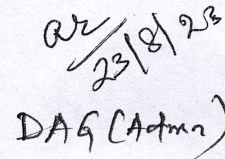 23/8/23
DAG (Admn)